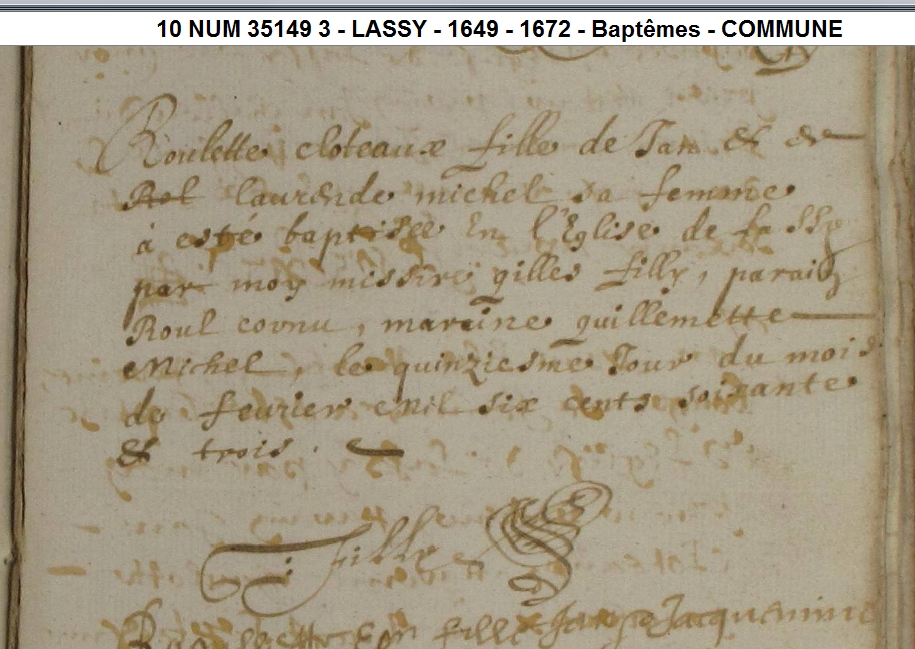 10 NUM 35149 3 - LASSY - 1649 - 1672 - Baptêmes - COMMUNE
Roulette cloteaux fille de Jan & de
Rol laurende michel sa femme
à esté baptisée En l'Eglise de lassy
par moy missire gilles filly, parain
Roul cornu, maraine guillemette
Michel, le quinziesme Jour du mois
de feurier Mil six cents soixante
& trois.
Filly
fille